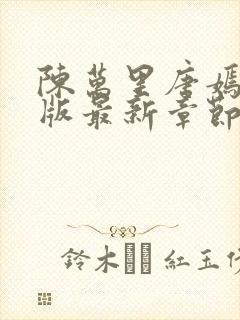 陳萬里唐嫣
版最新章節
鈴木 紅玉